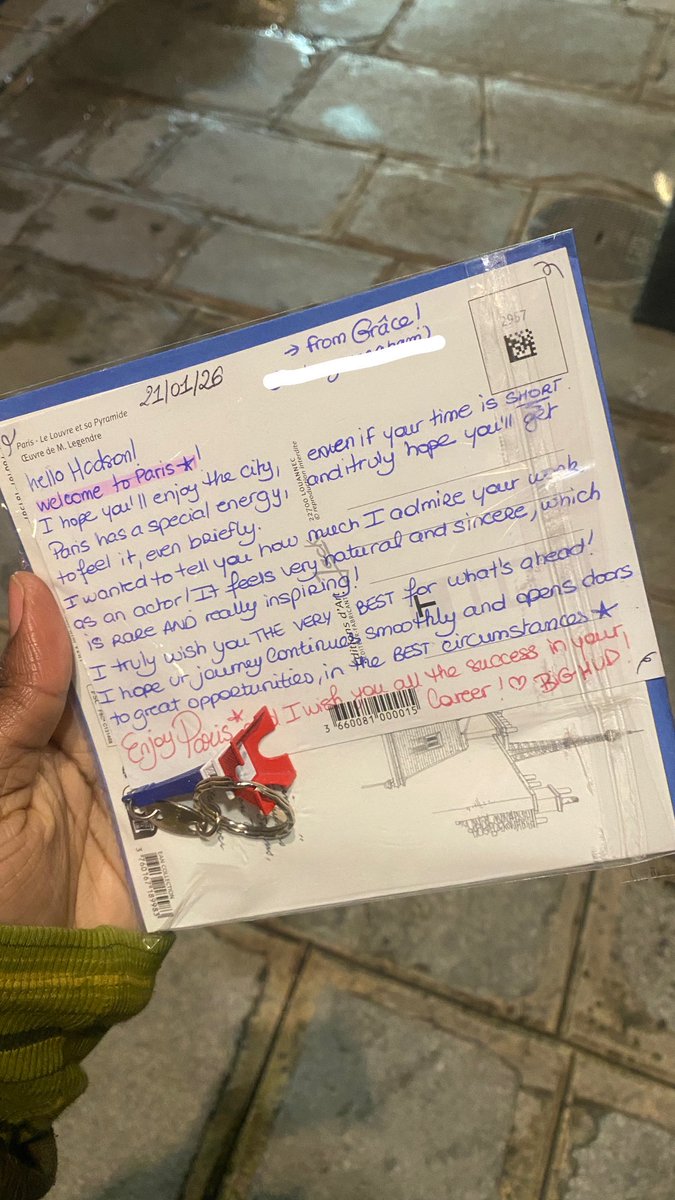 → from Grâce!
21/01/26
2957
Paris - Le Louvre et sa Pyramide
Œuvre de M. Legendre
hello Hodson!
welcome to Paris ★!
I hope you'll enjoy the city, even if your time is SHORT.
Paris has a special energy, and i truly hope you'll get
to feel it, even briefly.
I wanted to tell you how much I admire your work
as an actor! It feels very natural and sincere, which
is RARE AND really inspiring!
I truly wish you THE VERY BEST for what's ahead!
I hope ur journey continues smoothly and opens doors
to great opportunities, in the BEST circumstances ★
Enjoy Paris ★ I wish you all the success in your
Career! ♡ BIG HUD!
22700 LOUANNEC
© reproduction interdite
Editions d'Art
3 660081 000015
EAN COLLECTION